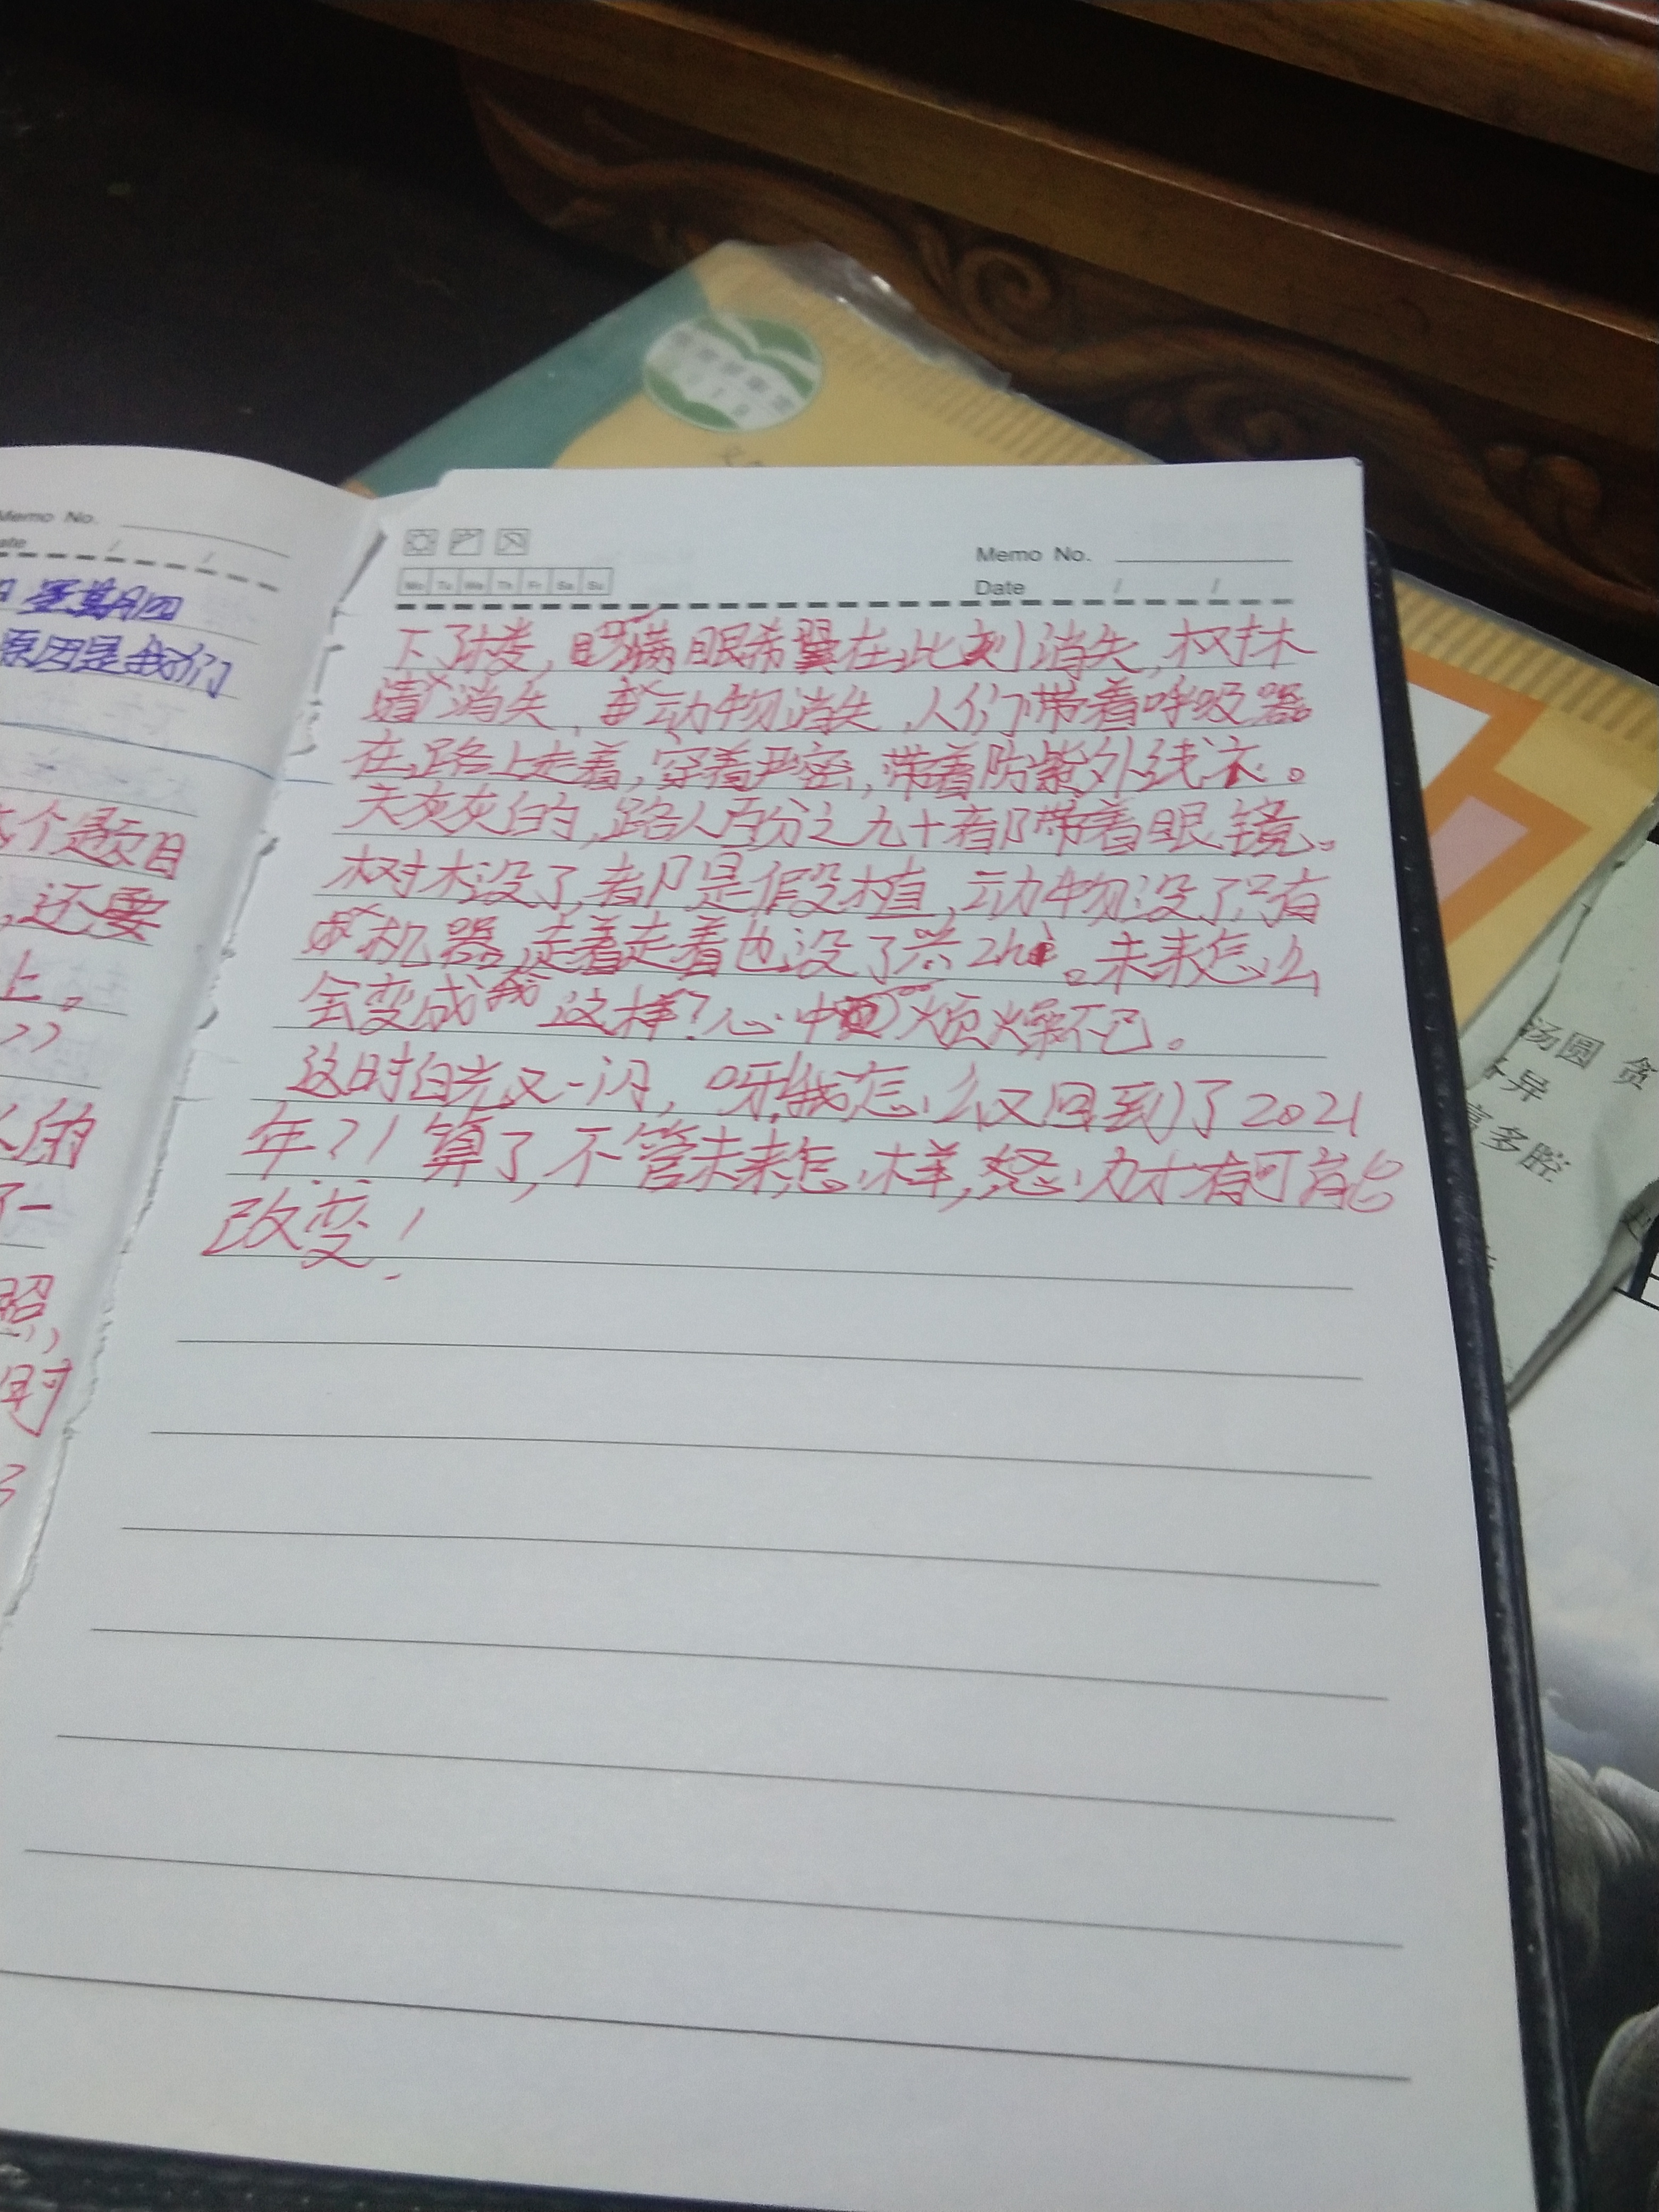 Memo No.
日 星期四
原因是我们
个题目
,还要
上。
的
了一
照,
时
Memo No.
Mo Tu We Th Fr Sa Su
Date / /
下了楼,满眼希翼在此刻消失,树林
消失,动物消失,人们带着呼吸器
在路上走着,穿着严密,带着防紫外线衣。
天灰灰的,路人百分之九十都带着眼镜。
树木没了,都是假植,动物没了只有
机器,走着走着也没了兴zhi。未来怎么
会变成这样?心中烦燥不已。
这时白光又一闪,呀,我怎么又回到了2021
年?!算了,不管未来怎样,努力才有可能
改变!
汤圆 贪
异
多腔